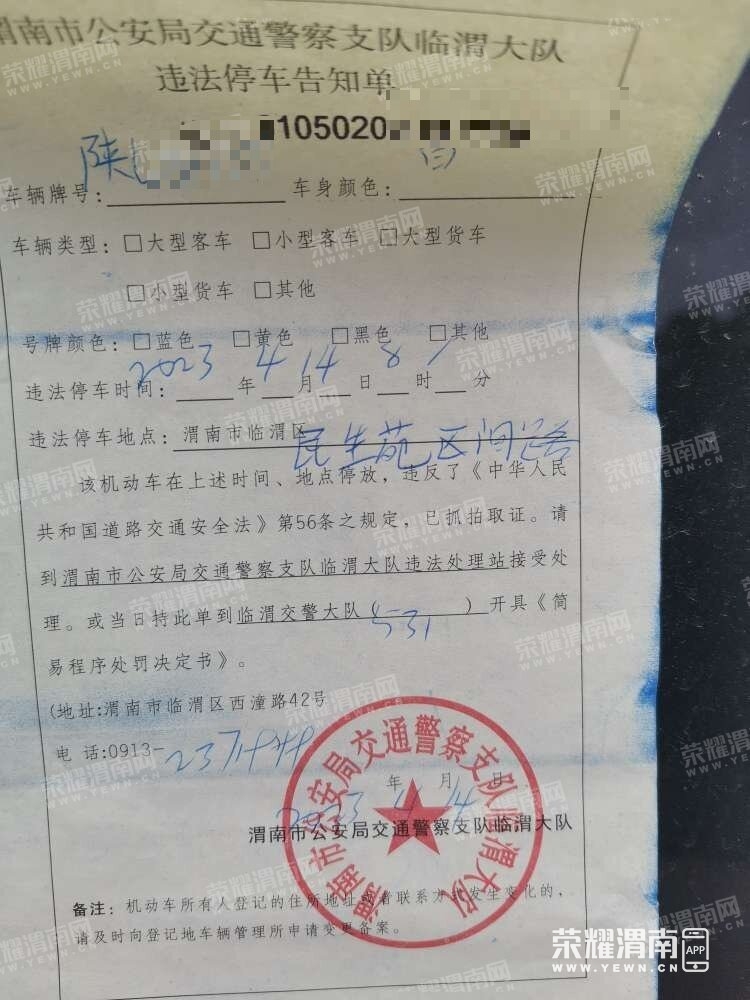 渭南市公安局交通警察支队临渭大队
违法停车告知单
105020
车辆牌号：陕 车身颜色：白
车辆类型：□大型客车 □小型客车 □大型货车
□小型货车 □其他
号牌颜色：□蓝色 □黄色 □黑色 □其他
违法停车时间：2023年4月14日8时1分
违法停车地点：渭南市临渭区民生苑区间路
该机动车在上述时间、地点停放，违反了《中华人民
共和国道路交通安全法》第56条之规定，已抓拍取证。请
到渭南市公安局交通警察支队临渭大队违法处理站接受处
理。或当日持此单到临渭交警大队（531）开具《简
易程序处罚决定书》。
(地址:渭南市临渭区西潼路42号
电 话:0913-
2023年4月14日
渭南市公安局交通警察支队临渭大队
渭南市公安局交通警察支队临渭大队
备注：机动车所有人登记的住所地址或者联系方式发生变化的，
请及时向登记地车辆管理所申请变更备案。
荣耀渭南网
WWW.YEWN.CN
荣耀渭南 APP
WWW.YEWN.CN